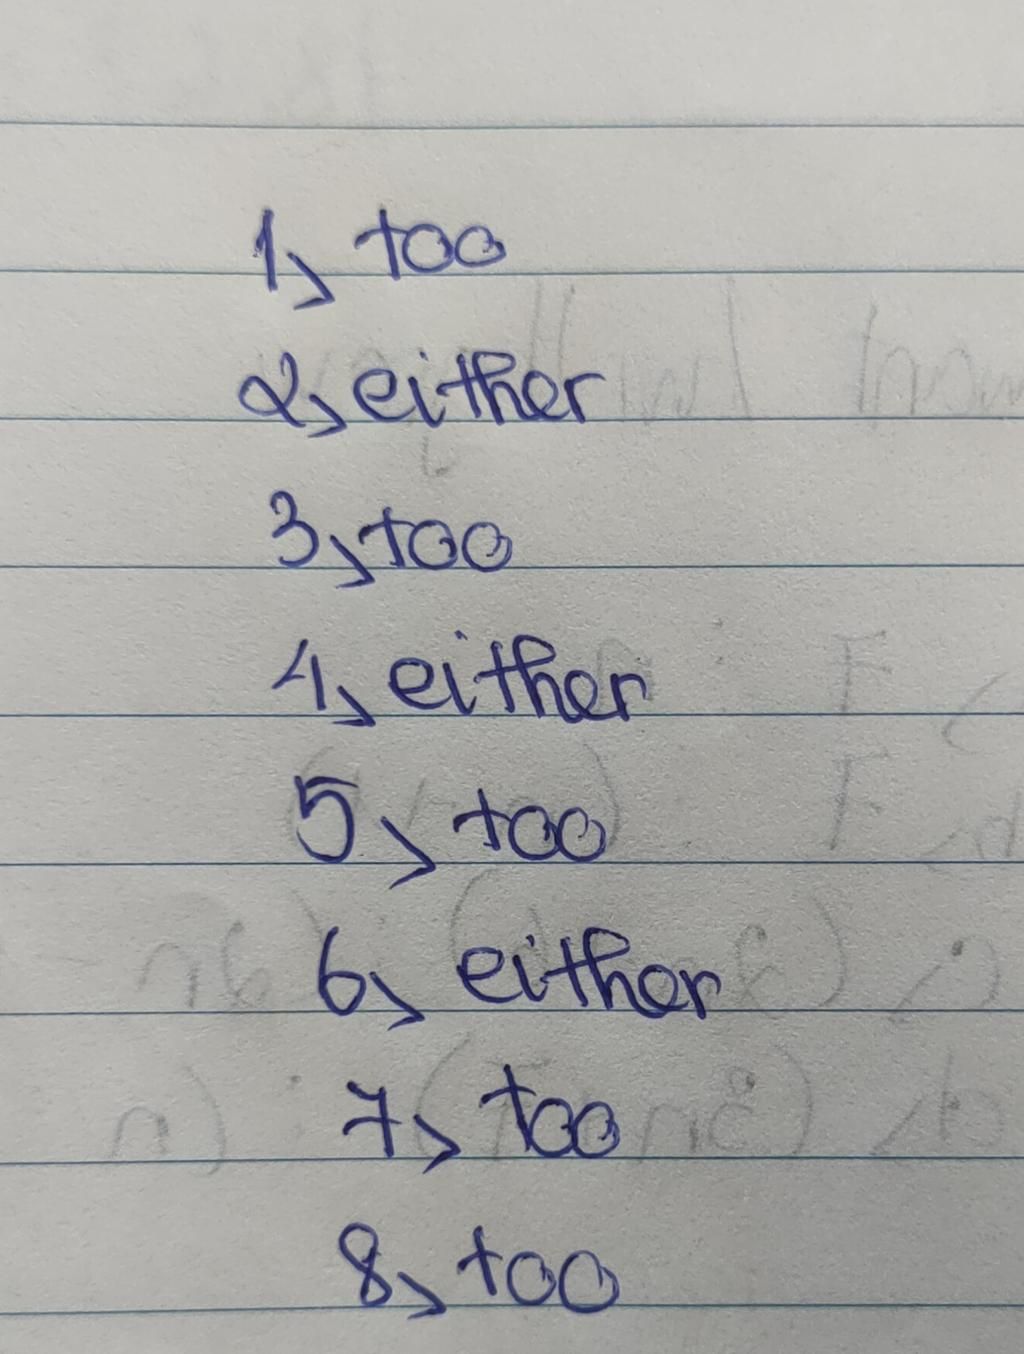 1, too
2, either
3, too
4, either
5, too
6, either
7, too
8, too